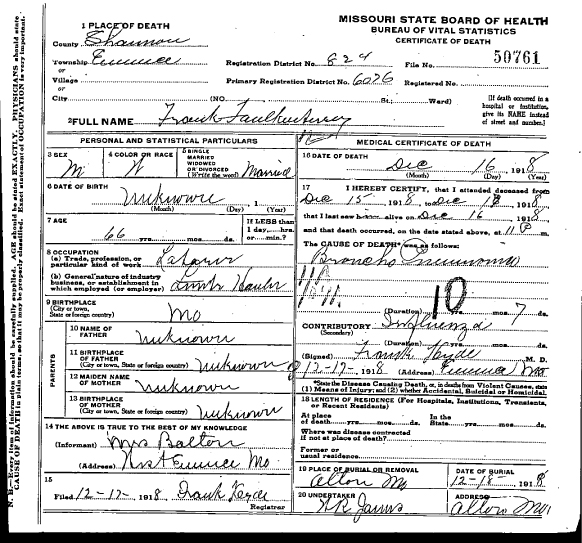 MISSOURI STATE BOARD OF HEALTH
BUREAU OF VITAL STATISTICS
CERTIFICATE OF DEATH
1 PLACE OF DEATH
County Shannon
Township Eminence
or
Village
or
City (NO. St.; Ward)
Registration District No. 824 File No. 50761
Primary Registration District No. 6026 Registered No.
[If death occurred in a hospital or institution, give its NAME instead of street and number.]
2 FULL NAME Frank Faulkenberry
PERSONAL AND STATISTICAL PARTICULARS
3 SEX M
4 COLOR OR RACE W
5 SINGLE MARRIED WIDOWED OR DIVORCED (Write the word) Married
6 DATE OF BIRTH Unknown, 1
(Month) (Day) (Year)
7 AGE 66 yrs. mos. ds.
If LESS than 1 day, hrs. or min.?
8 OCCUPATION
(a) Trade, profession, or particular kind of work Laborer
(b) General nature of industry business, or establishment in which employed (or employer) Hauler
9 BIRTHPLACE
(City or town, State or foreign country) Mo
PARENTS
10 NAME OF FATHER Unknown
11 BIRTHPLACE OF FATHER
(City or town, State or foreign country) Unknown
12 MAIDEN NAME OF MOTHER Unknown
13 BIRTHPLACE OF MOTHER
(City or town, State or foreign country) Unknown
14 THE ABOVE IS TRUE TO THE BEST OF MY KNOWLEDGE
(Informant) Mrs Bolton
(Address) West Eminence Mo
15
Filed 12-17-1918 Frank Hyde
Registrar
MEDICAL CERTIFICATE OF DEATH
16 DATE OF DEATH Dec 16 1918
(Month) (Day) (Year)
17 I HEREBY CERTIFY, that I attended deceased from
Dec 15 1918, to Dec 1918
that I last saw alive on Dec 16 1918
and that death occurred, on the date stated above, at 11 P m.
The CAUSE OF DEATH* was as follows:
Broncho Pneumonia
10
(Duration) yrs. mos. 7 ds.
CONTRIBUTORY Influenza
(Secondary)
(Duration) yrs. mos. ds.
(Signed) Frank Hyde M. D.
12-17-1918 (Address) Eminence Mo
*State the Disease Causing Death, or, in deaths from Violent Causes, state (1) Means of Injury; and (2) whether Accidental, Suicidal or Homicidal.
18 LENGTH OF RESIDENCE (For Hospitals, Institutions, Transients, or Recent Residents)
At place of death yrs. mos. ds. In the State yrs. mos. ds.
Where was disease contracted
if not at place of death?
Former or
usual residence
19 PLACE OF BURIAL OR REMOVAL Alton Mo.
DATE OF BURIAL 12-18-1918
20 UNDERTAKER
ADDRESS Alton Mo.
N. B.—Every item of information should be carefully supplied. AGE should be stated EXACTLY. PHYSICIANS should state CAUSE OF DEATH in plain terms, so that it may be properly classified. Exact statement of OCCUPATION is very important.